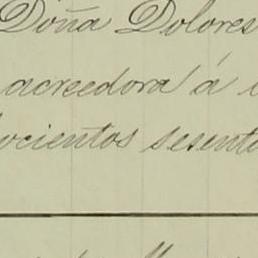 Doña Dolores
acreedora á
ocientos sesent